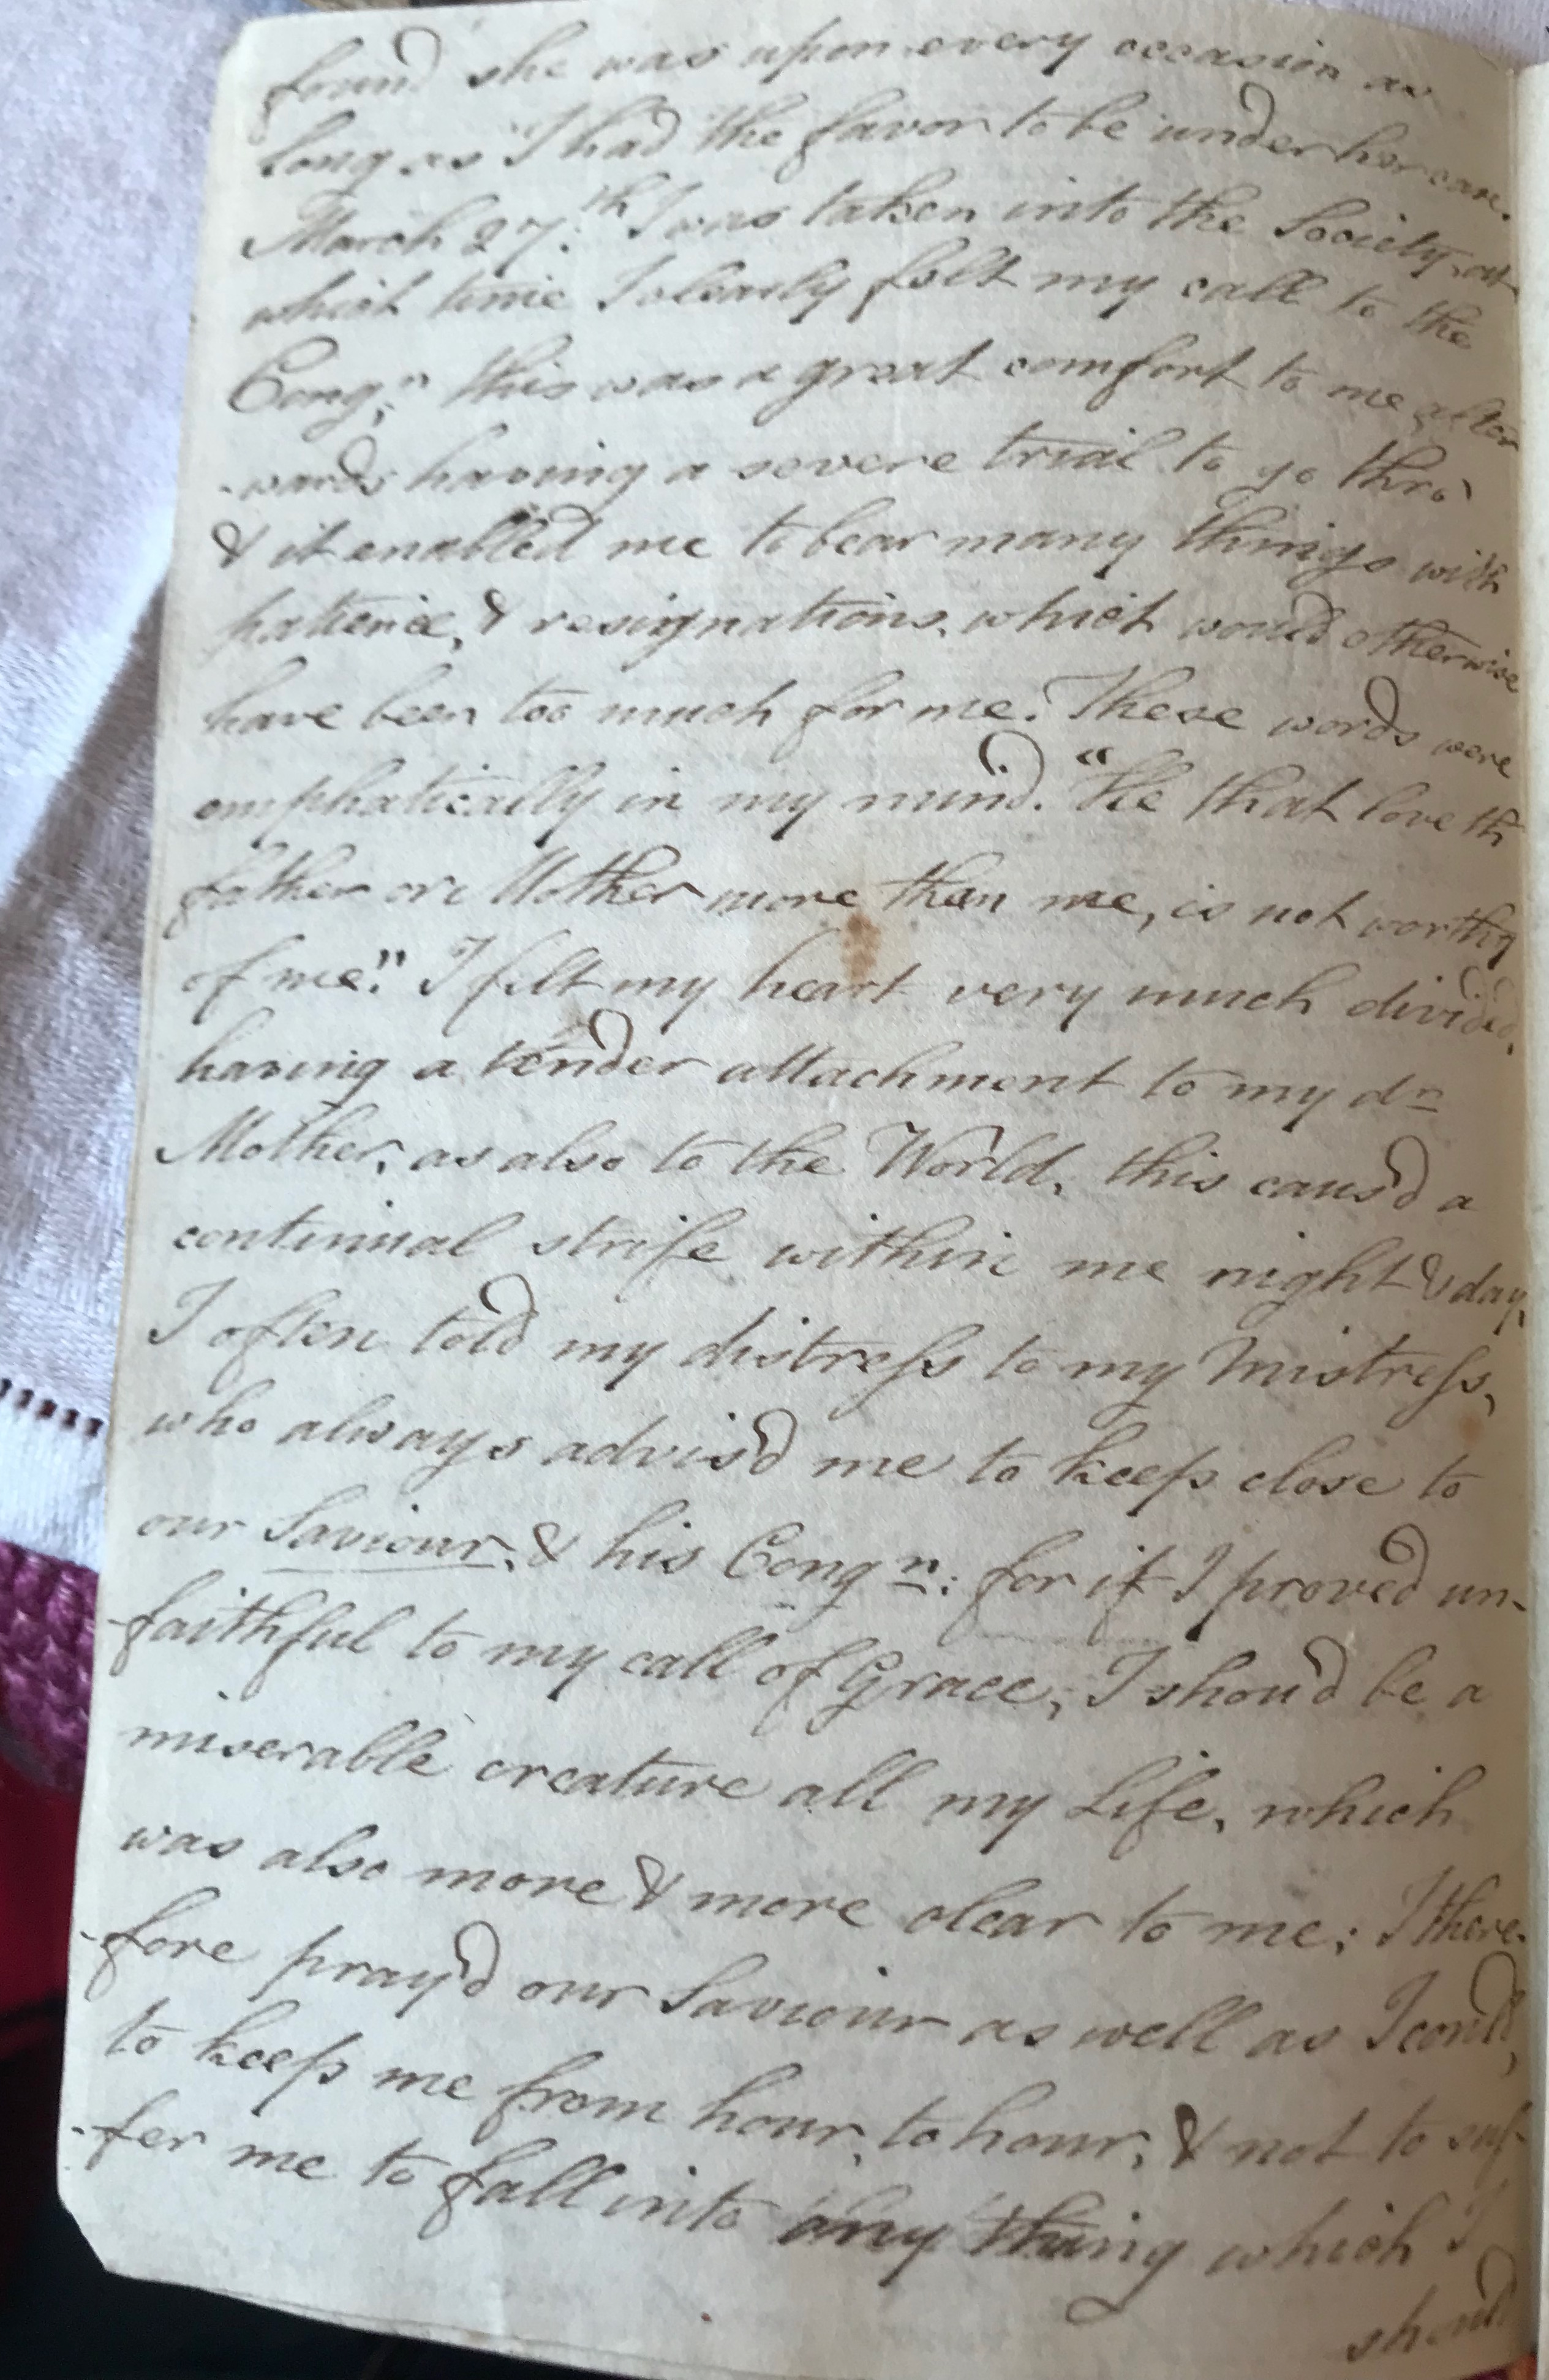 found she was upon every occasion as
long as I had the favor to be under her care.
March 27.th I was taken into the Society, at
which time I clearly felt my call to the
Cong:n this was a great comfort to me after
-wards having a severe trial to go thro'
& it enabled me to bear many things with
patience, & resignations, which would otherwise
have been too much for me. These words were
emphatically in my mind. "He that loveth
father or Mother more than me, is not worthy
of me". I felt my heart very much divided,
having a tender attachment to my dr
Mother, as also to the World, this caus'd a
continual strife within me night & day,
I often told my distress to my Mistress,
who always advis'd me to keep close to
our Saviour, & his Congn: for if I proved un-
-faithful to my call of Grace, I shou'd be a
miserable creature all my Life, which
was also more & more clear to me; I there-
-fore pray'd our Saviour as well as I could,
to keep me from hour, to hour, & not to suf-
-fer me to fall into any thing which I
should